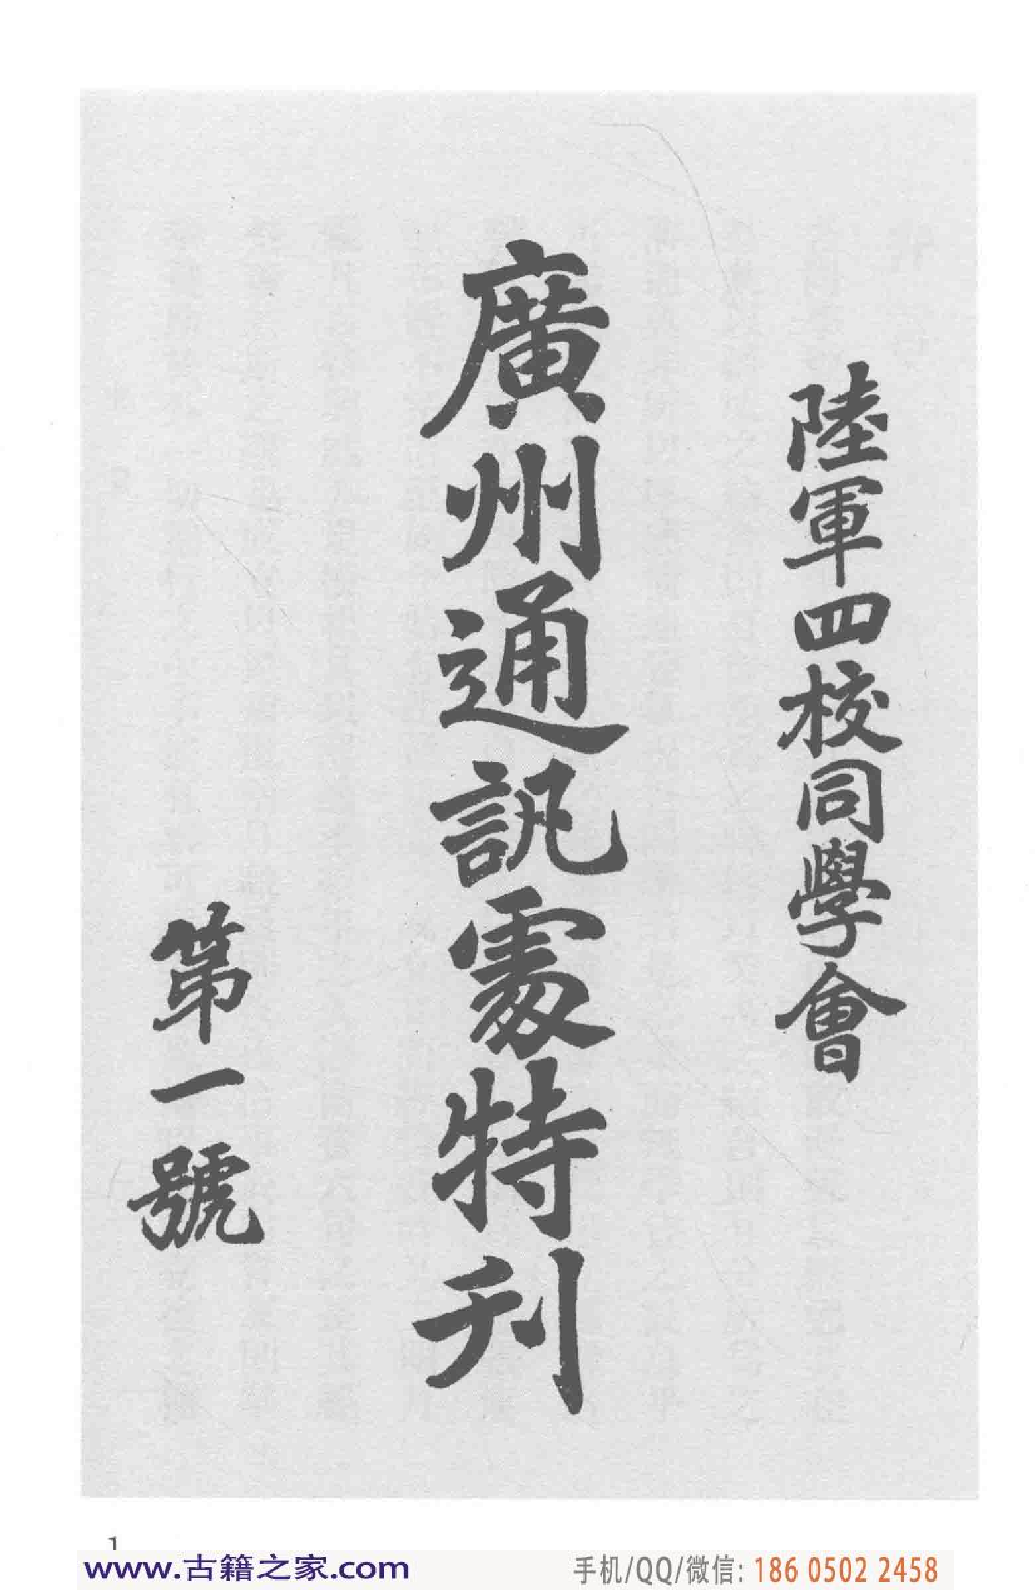 陸軍四校同學會
廣州通訊處特刊
第一號
1
www.古籍之家.com
手机/QQ/微信: 186 0502 2458